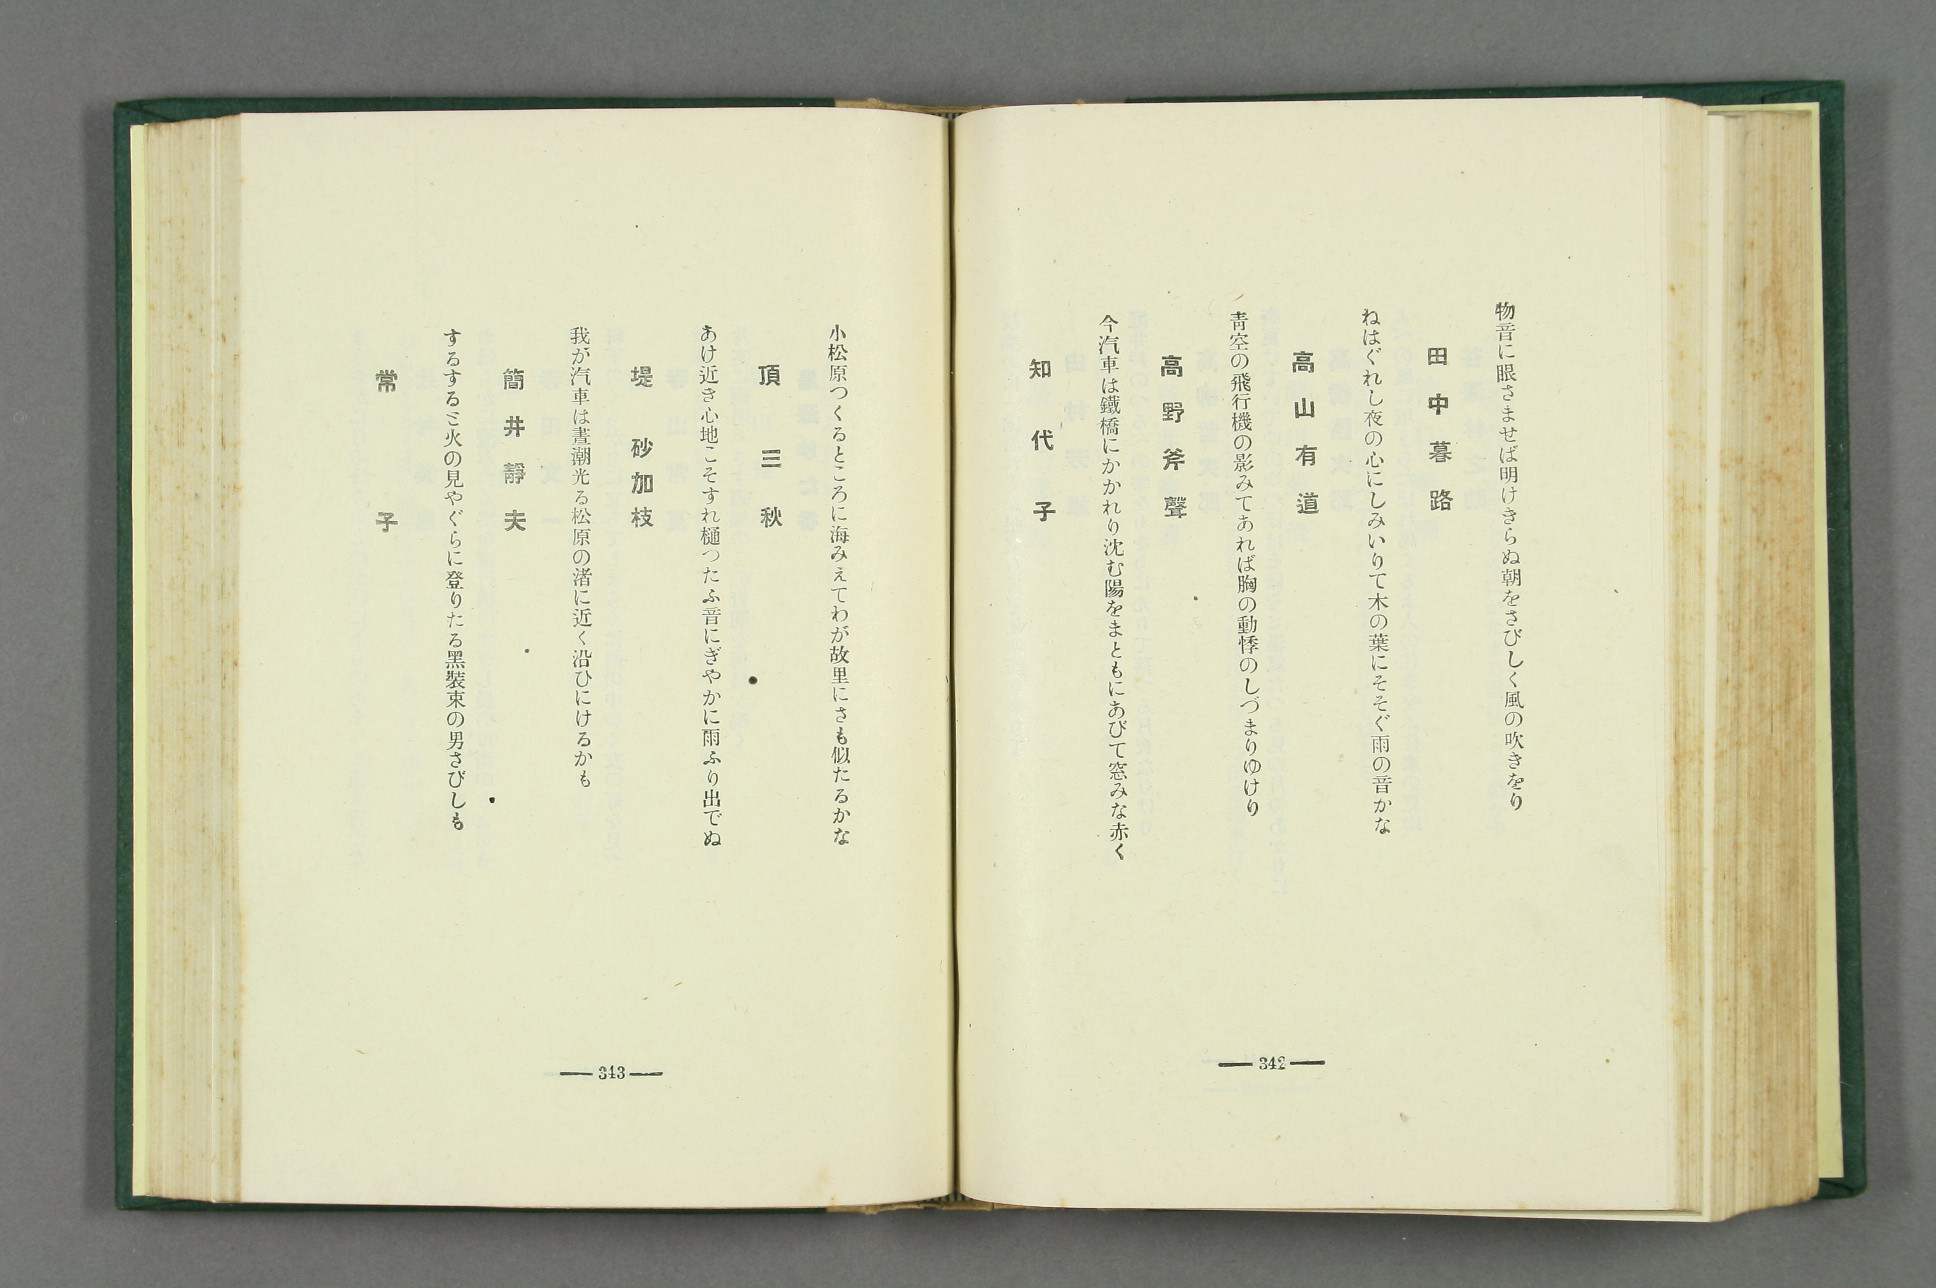 物音に眼さませば明けきらぬ朝をさびしく風の吹きをり
田中暮路
ねはぐれし夜の心にしみいりて木の葉にそそぐ雨の音かな
高山有道
靑空の飛行機の影みてあれば胸の動悸のしづまりゆけり
高野斧聲
今汽車は鐵橋にかかれり沈む陽をまともにあびて窓みな赤く
知代子
―342―
小松原つくるところに海みえてわが故里にさも似たるかな
頂三秋
あけ近き心地こそすれ樋つたふ音にぎやかに雨ふり出でぬ
堤砂加枝
我が汽車は晝潮光る松原の渚に近く沿ひにけるかも
簡井靜夫
するすると火の見やぐらに登りたる黑裝束の男さびしも
常子
―343―